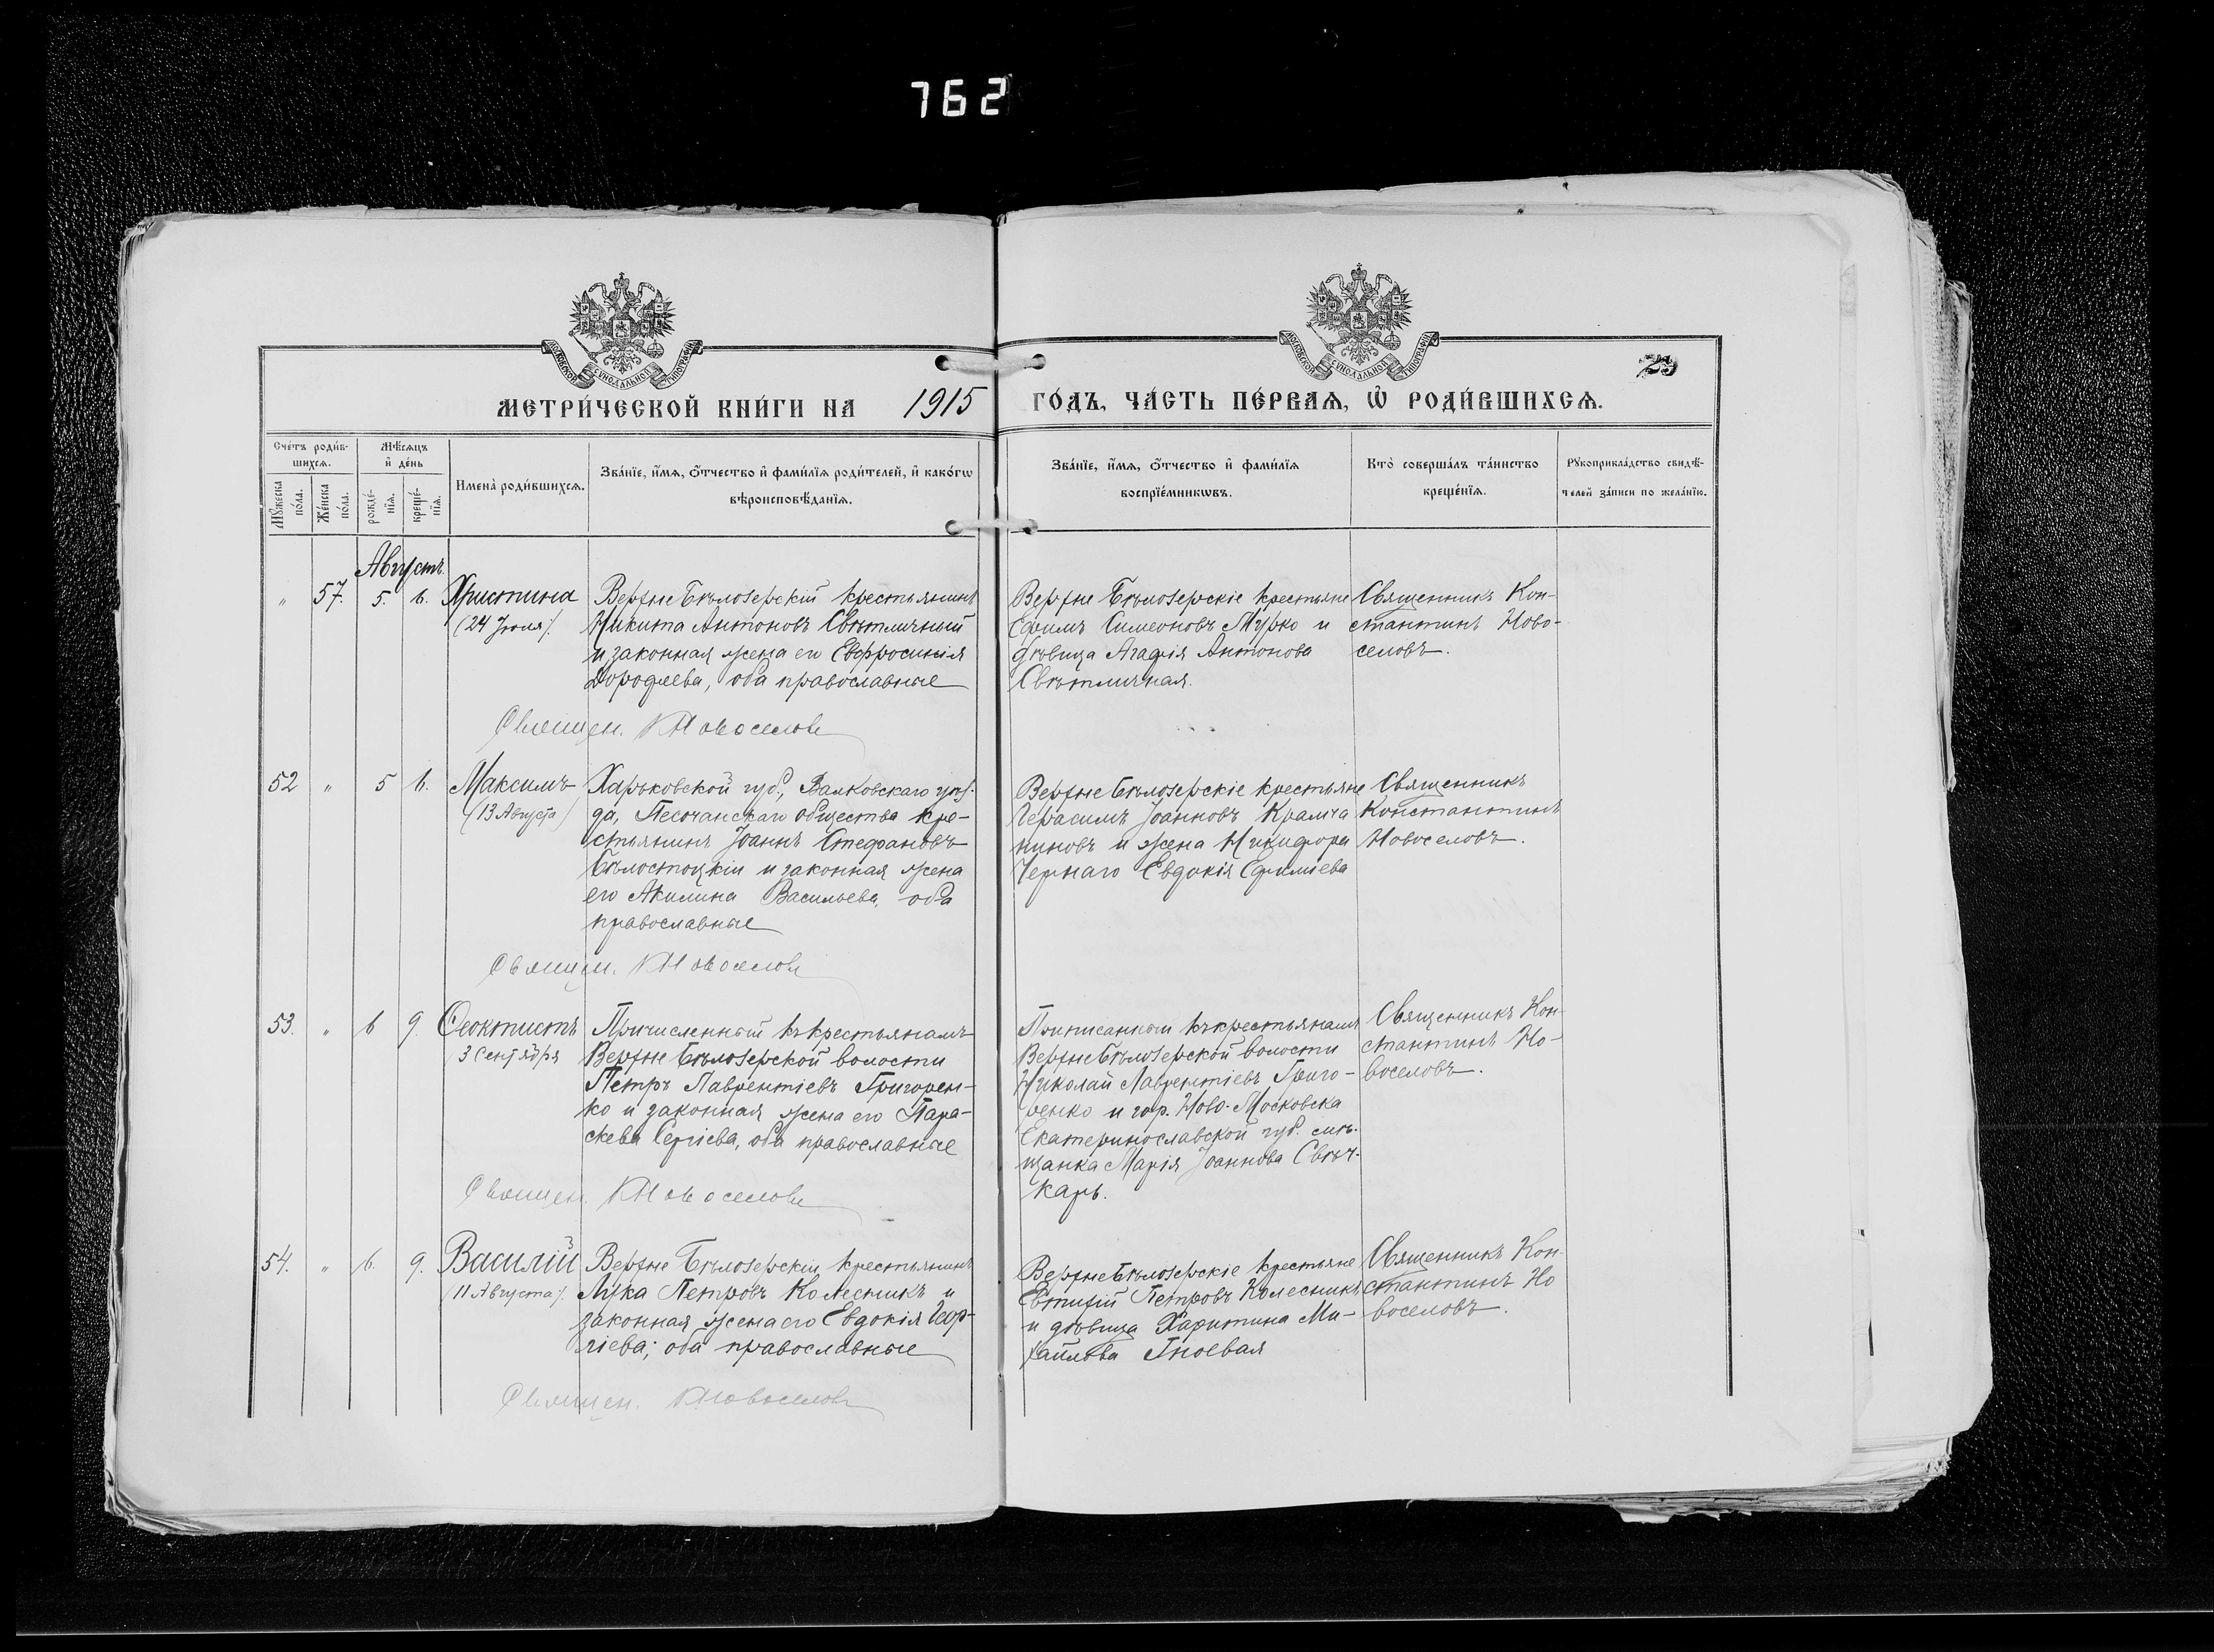 762
МОСКОВСКОЙ СѴНОДАЛЬНОЙ ТИПОГРАФІИ
МОСКОВСКОЙ СѴНОДАЛЬНОЙ ТИПОГРАФІИ
МЕТРИ́ЧЕСКОЙ КНИ́ГИ НА 1915 ГО́ДЪ, ЧА́СТЬ ПЕ́РВАѦ, Ѡ҆ РОДИ́ВШИХСѦ.
Сче́тъ роди́в-
шихсѧ.
Мꙋ́жеска
по́ла.
Же́нска
по́ла.
Мѣ́сѧцъ
и҆ де́нь
рожде́-
нїѧ.
креще́-
нїѧ.
И҆мена̀ роди́вшихсѧ.
Зва́нїе, и҆́мѧ, ѻ҆́тчество и҆ фами́лїѧ роди́телей, и҆ како́гѡ
вѣроисповѣ́данїѧ.
Зва́нїе, и҆́мѧ, ѻ҆́тчество и҆ фами́лїѧ
воспрїе́мникѡвъ.
Кто̀ соверша́лъ та́инство
креще́нїѧ.
Рꙋкоприкла́дство свидѣ́-
телей за́писи по жела́нїю.
Августъ.
" 57. 5. 6.
Христина
(24 Іюля).
Верхне Бѣлозерскій крестьянинъ
Никита Антоновъ Свѣтличный
и законная жена его Евфросинія
Дорофеева, оба православные
Верхне Бѣлозерскіе крестьяне
Ефимъ Симеоновъ Мурко и
дѣвица Агафія Антонова
Свѣтличная.
Священникъ Кон-
стантинъ Ново-
селовъ.
Священ. К Новоселовъ
52 " 5 6.
Максимъ
(13 Августа)
Харьковской губ., Валковскаго уѣз-
да, Песочанскаго общества кре-
стьянинъ Іоаннъ Стефановъ
Бѣлостоцкій и законная жена
его Акилина Васильева, оба
православные
Верхне Бѣлозерскіе крестьяне
Герасимъ Іоанновъ
ниновъ и жена Никифора
Чернаго Евдокія Ефимиева
Священникъ
Константинъ
Новоселовъ.
Священ. К Новоселовъ
53. " 6 9.
Ѳеоктистъ
3 Сентября
Причисленный къ крестьянамъ
Верхне Бѣлозерской волости
Петръ Лаврентіевъ Григорен-
ко и законная жена его Пара-
скева Сергіева, оба православные
Приписанный къ крестьянамъ
Верхне Бѣлозерской волости
Николай Лаврентіевъ Григо-
ренко и гор. Ново-Московска
Екатеринославской губ. мѣ-
щанка Марія Іоаннова Свѣч-
карь.
Священникъ Кон-
стантинъ Но-
воселовъ.
Священ. К Новоселовъ
54. " 6. 9.
Василій
(11 Августа).
Верхне Бѣлозерскій крестьянинъ
Лука Петровъ Колесникъ и
законная жена его Евдокія Геор-
гіева; оба православные
Верхне Бѣлозерскіе крестьяне
Евтихій Петровъ Колесникъ
и дѣвица Харитина Ми-
хайлова Гноевая
Священникъ Кон-
стантинъ Но
воселовъ.
Священ. К Новоселовъ